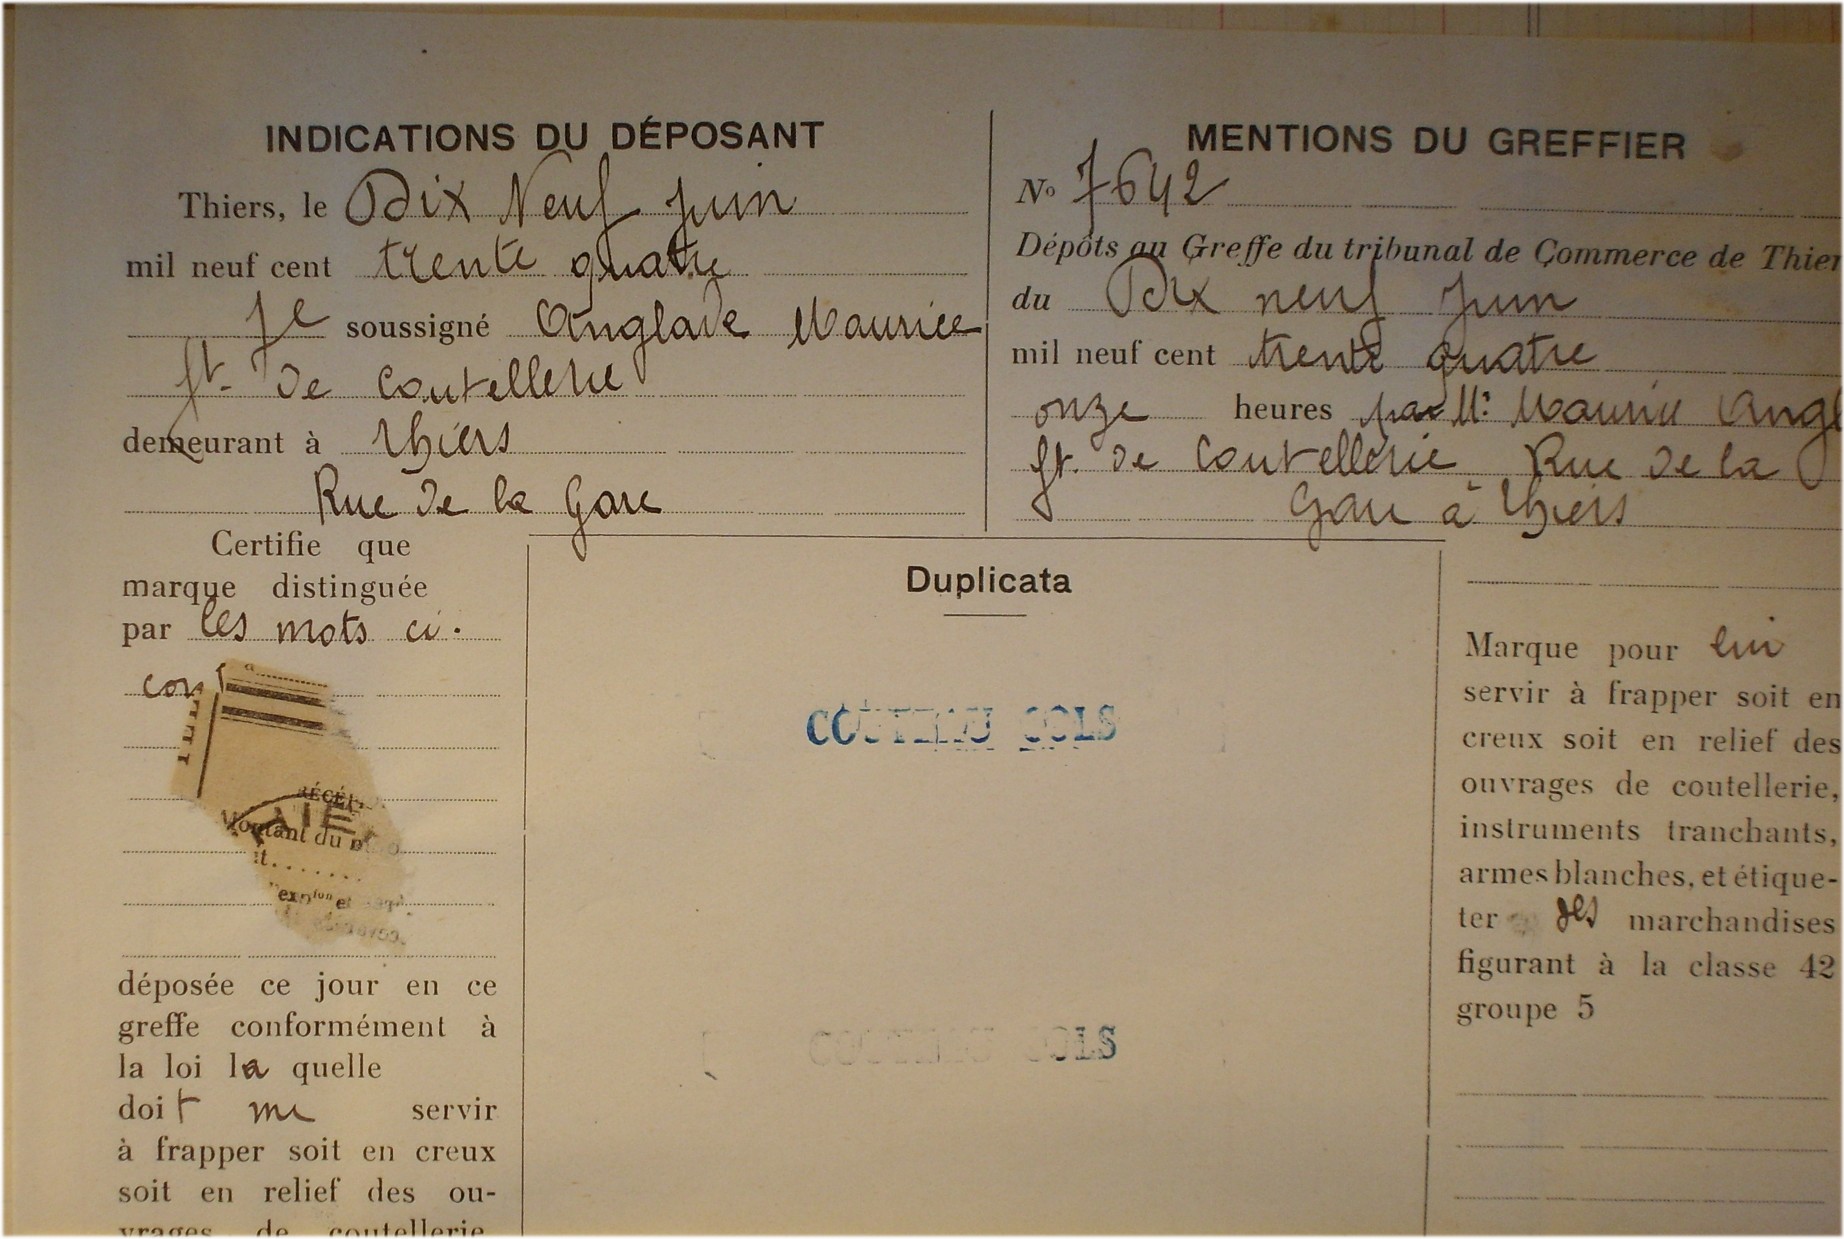 INDICATIONS DU DÉPOSANT
Thiers, le Dix Neuf juin
mil neuf cent trente quatre
Je soussigné Anglade Maurice
ft. de Coutellerie
demeurant à Thiers
Rue de la Gare
Certifie que
marque distinguée
par les mots ci.
con
RÉCÉP
Montant du
déposée ce jour en ce
greffe conformément à
la loi la quelle
doit me servir
à frapper soit en creux
soit en relief des ou-
vrages de coutellerie
Duplicata
COLS
COLS
MENTIONS DU GREFFIER
No 7642
Dépôts au Greffe du tribunal de Commerce de Thier
du Dix neuf Juin
mil neuf cent trente quatre
onze heures par Mr Maurice Angl
ft. de Coutellerie Rue de la
Gare à Thiers
Marque pour lui
servir à frapper soit en
creux soit en relief des
ouvrages de coutellerie,
instruments tranchants,
armes blanches, et étique-
ter des marchandises
figurant à la classe 42
groupe 5